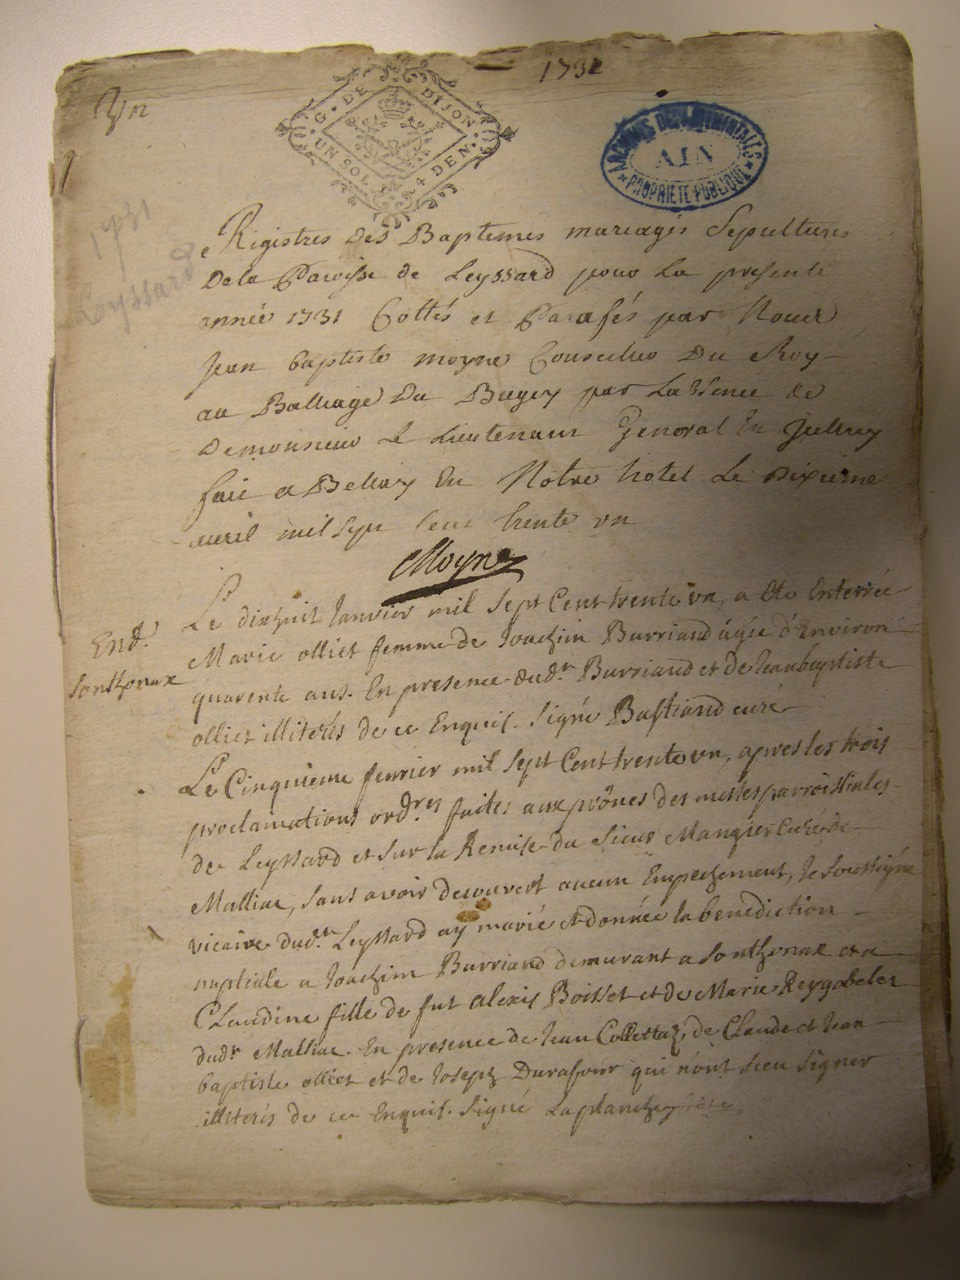 1731
Un
G. DE DIJON
UN SOL 4 DEN.
ARCHIVES DEPARTEMENTALES
AIN
PROPRIETE PUBLIQUE
1731
Leyssard
Registres Des Baptemes mariages Sepultures
De la Paroisse de Leyssard pour La presente
année 1731 Cottés et Parafés par Nous
Jean baptiste moyne Conseiller Du Roy
au Balliage Du Bugey par Labsence de
De monsieur Le Lieutenant General En
fait a Belley En Notre hotel Le Dixieme
mil sept Cent trente un
Moyne
Le dixhuit Janvier mil Sept Cent trente un, a eté Enterrée
Marie olliet femme de Joachim Burriand agée d'Environ
quarente ans. En presence dud.r Burriand et de Jean baptiste
olliet illiterés de ce Enquis. Signé Bastiand curé
End.
Sonthonax
Le Cinquieme fevrier mil Sept Cent trente un, apres les trois
proclamations ord.res faites aux prônes des messes parroissiales
de Leyssard et sur la Remise du Sieur Mangier Curé de
Malliac, sans avoir decouvert aucun Empechement, Je Soussigné
vicaire dud. Leyssard ay marié et donnée la benediction
nuptiale a Joachim Burriand demurant a Sonthonax et a
Claudine fille de fut alexis Boisset et de Marie Reygobelet
dud.r Malliac. En presence de Jean Collettaz, de Claude et Jean
baptiste olliet et de Joseph Durafour qui n'ont sceu signer
illiterés de ce Enquis. Signé Laplanche